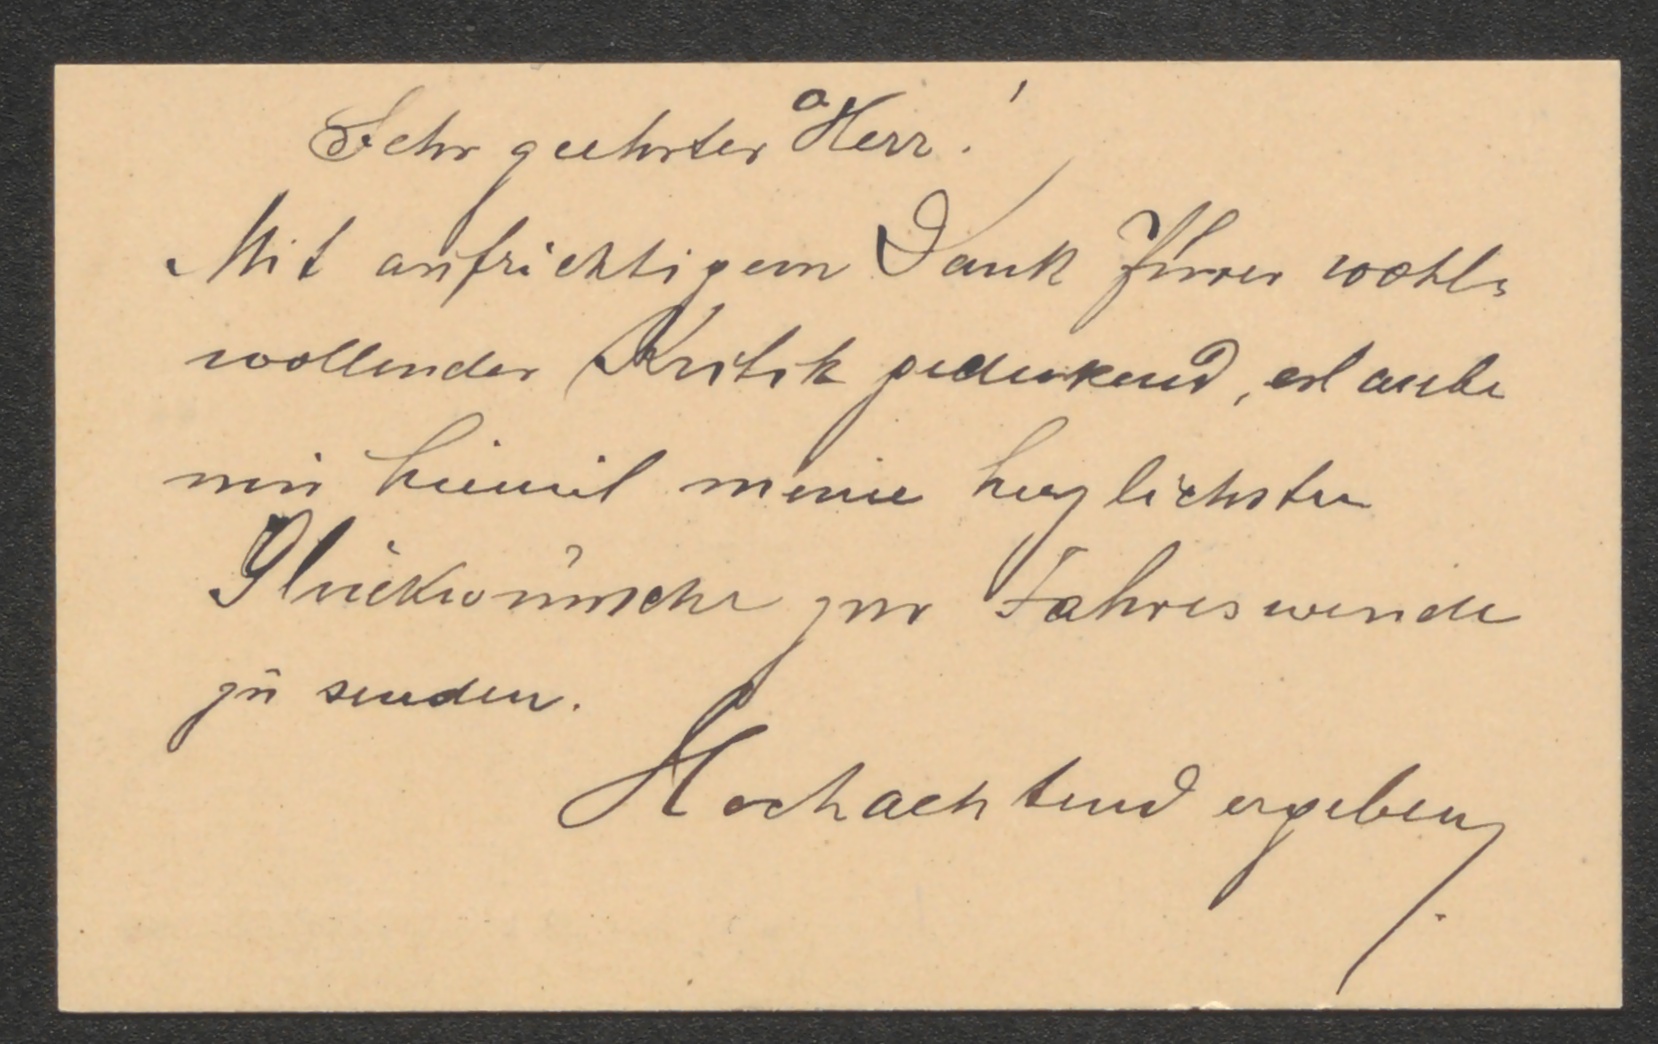 Sehr geehrter Herr!
Mit aufrichtigem Dank Ihrer wohl-
wollender Kritik gedenkend, erlaube
mir hiemit meine herzlichsten
Glückwünsche zur Jahreswende
zu senden.
Hochachtend ergeben